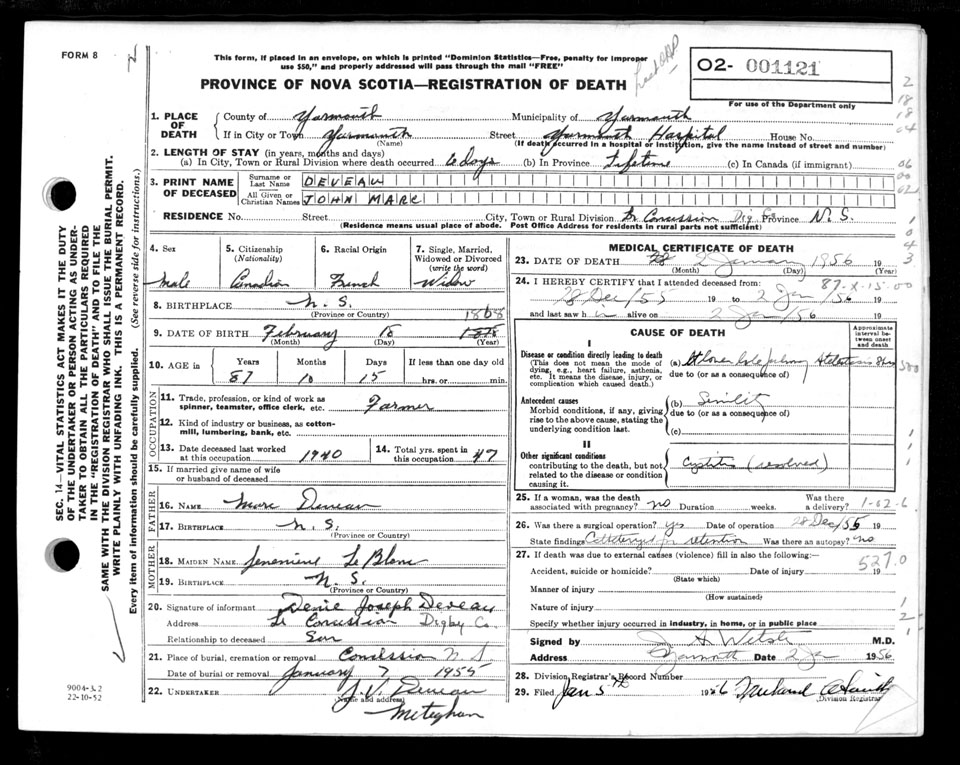 FORM 8
2
This form, if placed in an envelope, on which is printed "Dominion Statistics—Free, penalty for improper
use $50," and properly addressed will pass through the mail "FREE"
PROVINCE OF NOVA SCOTIA—REGISTRATION OF DEATH
O2- 001121
For use of the Department only
1. PLACE OF DEATH
County of Yarmouth Municipality of Yarmouth
If in City or Town Yarmouth Street Yarmouth Hospital House No.
(Name) (If death occurred in a hospital or institution, give the name instead of street and number)
2. LENGTH OF STAY (in years, months and days)
(a) In City, Town or Rural Division where death occurred 6 days (b) In Province Lifetime (c) In Canada (if immigrant)
3. PRINT NAME OF DECEASED
Surname or Last Name DEVEAU
All Given or Christian Names JOHN MARK
RESIDENCE No. Street City, Town or Rural Division Concession Dig Co Province N.S.
(Residence means usual place of abode. Post Office Address for residents in rural parts not sufficient)
4. Sex
Male
5. Citizenship (Nationality)
Canadian
6. Racial Origin
French
7. Single, Married, Widowed or Divorced (write the word)
Widow
8. BIRTHPLACE N.S.
(Province or Country)
1868
9. DATE OF BIRTH February 18
(Month) (Day) (Year)
10. AGE in Years Months Days If less than one day old
87 10 15 hrs. or min.
OCCUPATION
11. Trade, profession, or kind of work as spinner, teamster, office clerk, etc. Farmer
12. Kind of industry or business, as cotton-mill, lumbering, bank, etc.
13. Date deceased last worked at this occupation 1940
14. Total yrs. spent in this occupation 47
15. If married give name of wife or husband of deceased
FATHER
16. NAME Marc Deveau
17. BIRTHPLACE N.S.
(Province or Country)
MOTHER
18. MAIDEN NAME Le Blanc
19. BIRTHPLACE N.S.
(Province or Country)
20. Signature of informant Denie Joseph Deveau
Address Concession Digby Co.
Relationship to deceased Son
21. Place of burial, cremation or removal Concession N.S.
Date of burial or removal January 7 1955
22. UNDERTAKER J.V. Deveau
(Name and address)
Meteghan
MEDICAL CERTIFICATE OF DEATH
23. DATE OF DEATH 2 January 1956 19
(Month) (Day) (Year)
24. I HEREBY CERTIFY that I attended deceased from: 87-X-15-00
28 Dec/55 19 to 2 Jan/56 19
and last saw h im alive on 2 Jan/56 19
CAUSE OF DEATH
Approximate interval between onset and death
I
Disease or condition directly leading to death
(This does not mean the mode of dying, e.g., heart failure, asthenia, etc. It means the disease, injury, or complication which caused death.)
(a) Lt lower lobe Atelectasis
due to (or as a consequence of)
Antecedent causes
Morbid conditions, if any, giving rise to the above cause, stating the underlying condition last.
(b) Senility
due to (or as a consequence of)
(c)
II
Other significant conditions
contributing to the death, but not related to the disease or condition causing it.
Cystitis (resolved)
25. If a woman, was the death associated with pregnancy? no Duration weeks. Was there a delivery? 1-02-6
26. Was there a surgical operation? yes Date of operation 28 Dec/55 19
State findings Catheterized for retention Was there an autopsy? no
27. If death was due to external causes (violence) fill in also the following:—
527.0
Accident, suicide or homicide? Date of injury 19
(State which)
Manner of injury
(How sustained)
Nature of injury
Specify whether injury occurred in industry, in home, or in public place
Signed by M.D.
Address Yarmouth Date 2 Jan 1956
28. Division Registrar's Record Number
29. Filed Jan 5th 1956
Division Registrar
SEC. 14—VITAL STATISTICS ACT MAKES IT THE DUTY
OF THE UNDERTAKER OR PERSON ACTING AS UNDER-
TAKER "TO OBTAIN ALL THE PARTICULARS REQUIRED
IN THE "REGISTRATION OF DEATH" AND TO FILE THE
SAME WITH THE DIVISION REGISTRAR WHO SHALL ISSUE THE BURIAL PERMIT.
WRITE PLAINLY WITH UNFADING INK. THIS IS A PERMANENT RECORD.
Every item of information should be carefully supplied. (See reverse side for instructions.)
9004-3.2
22-10-52